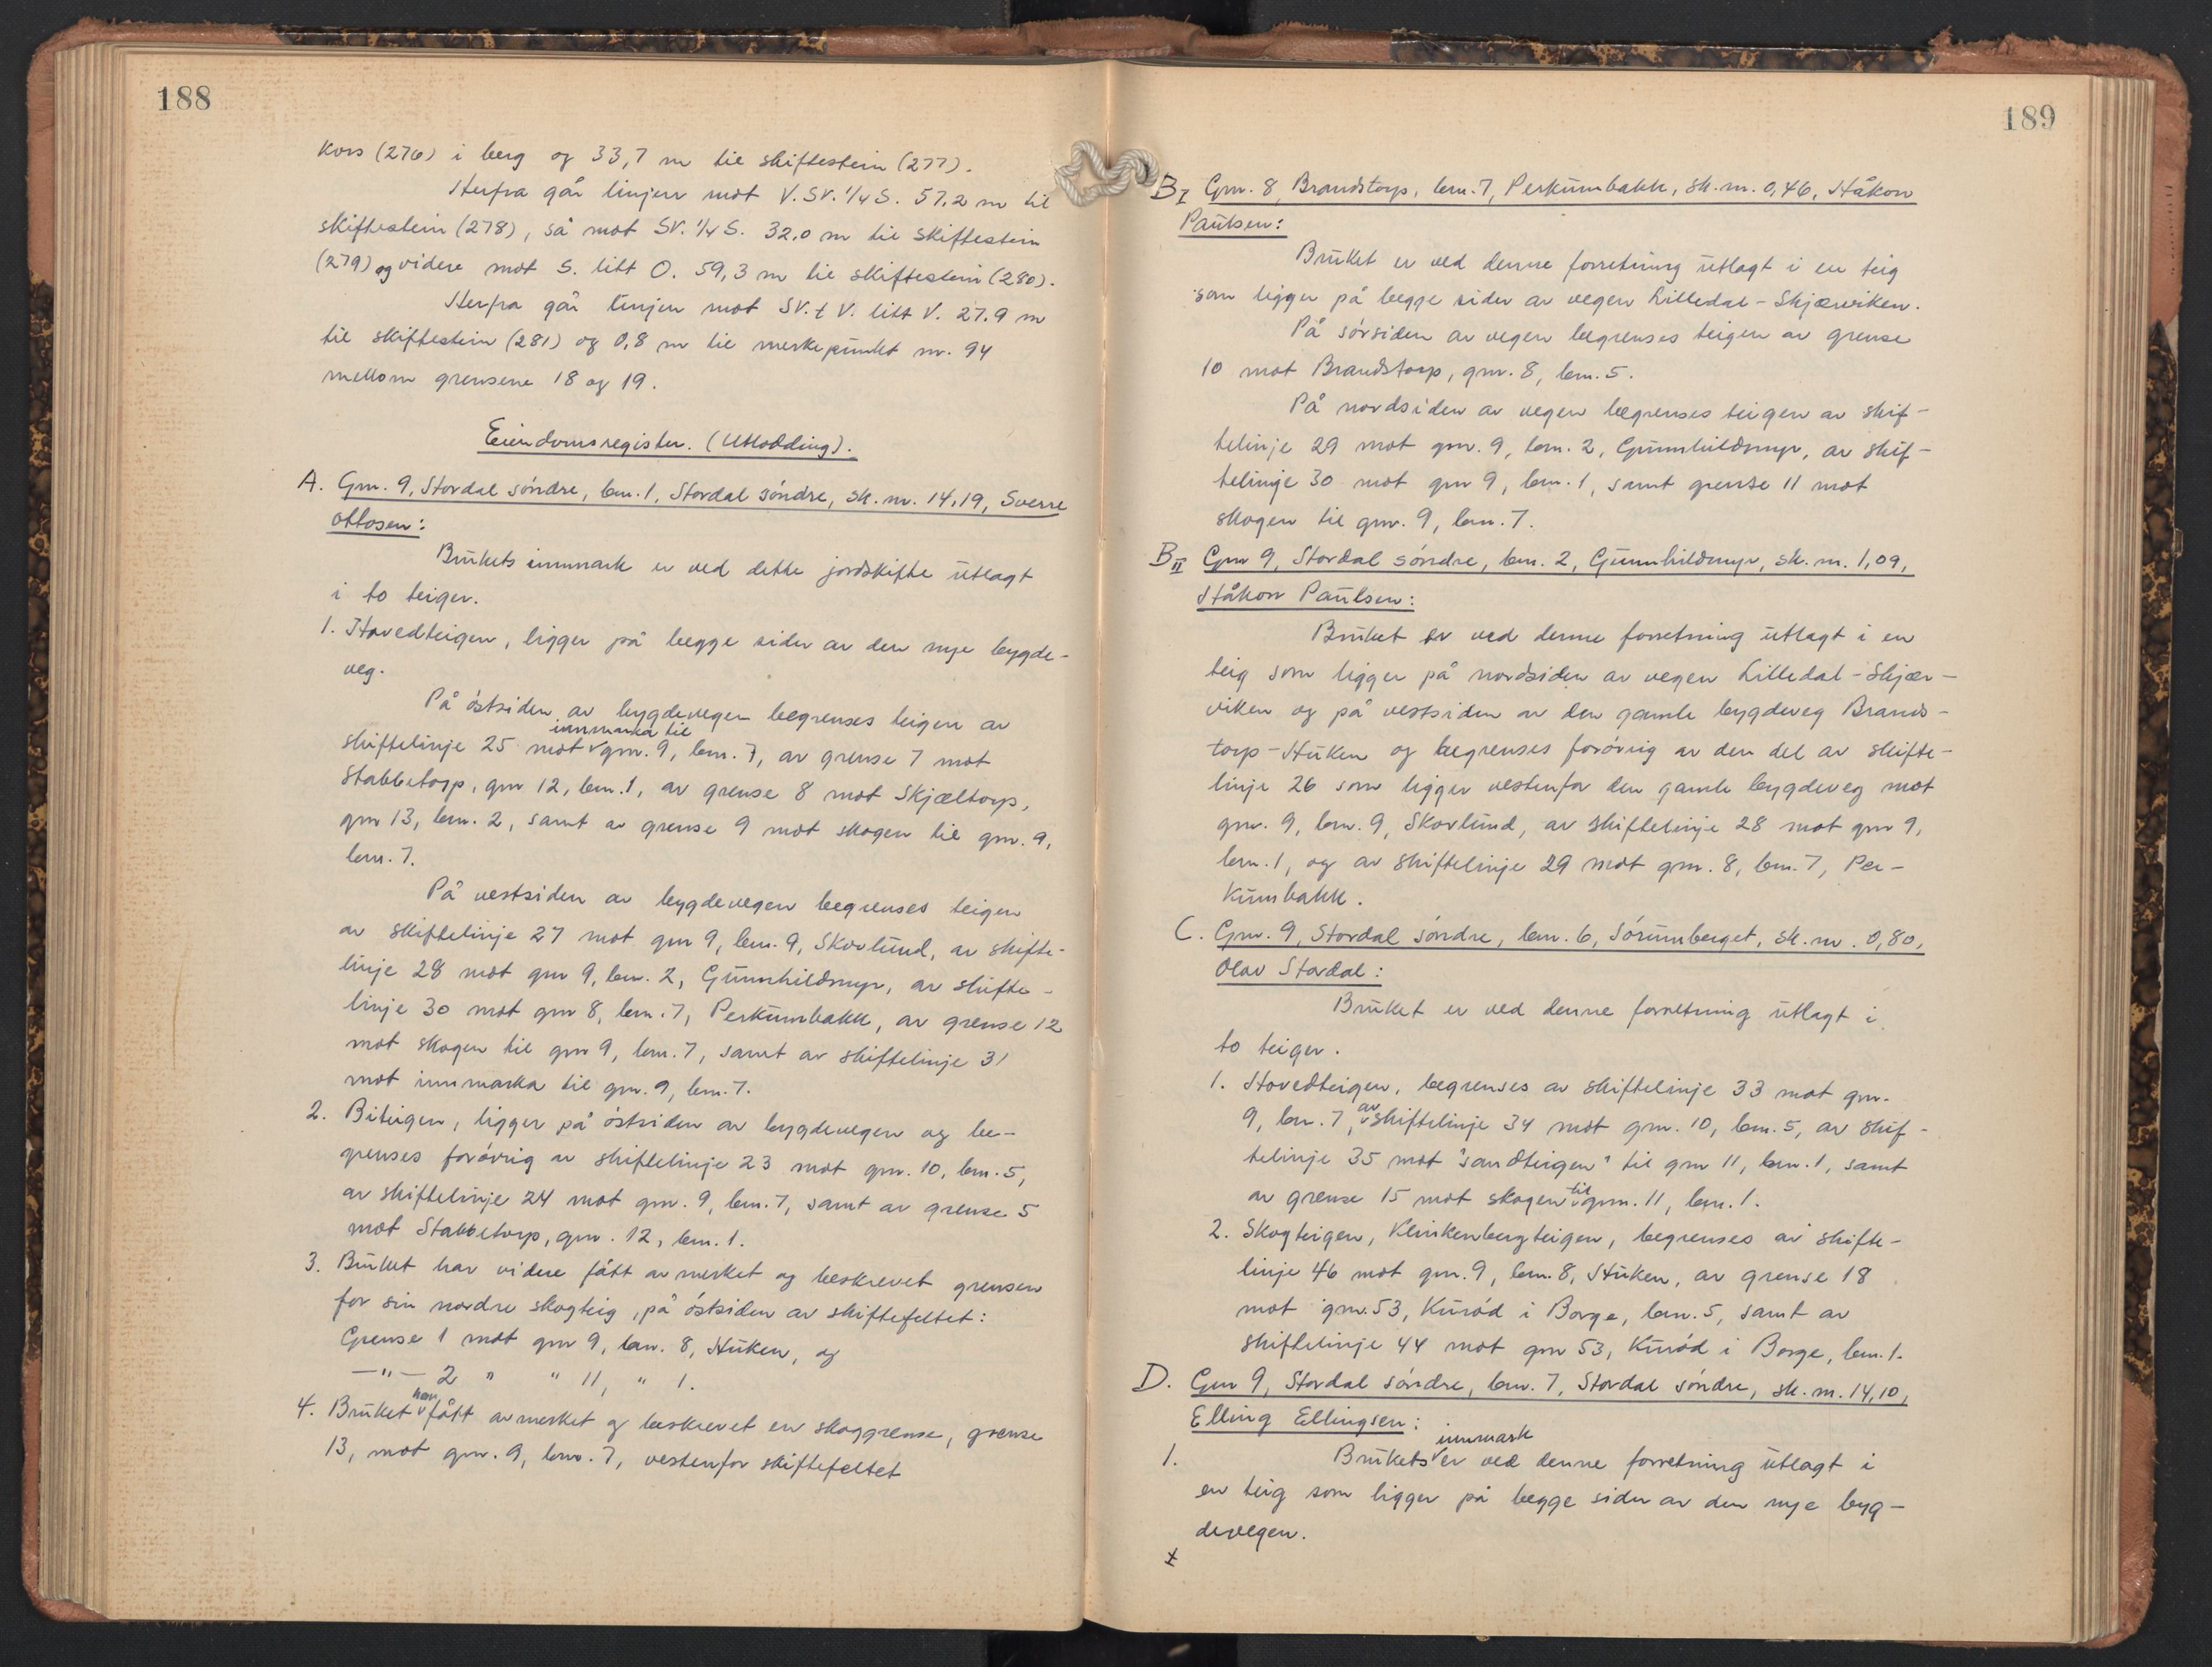 188
Kors (276) i berg og 33,7 m til skiftestein (277).
Herfra går linjen mot V.SV.1/4 S. 57,2 m til
skiftestein (278), så mot SV. 1/4 S. 32,0 m til skiftestein
(279) og videre mot S. litt O. 59,3 m til skiftestein (280).
Herfra går linjen mot SV. t V. litt V. 27,9 m
til skiftestein (281) og 0,8 m til merkepunkt nr. 94
mellom grensene 18 og 19.
Eiendomsregister. (Utlodding).
A. Gnr. 9, Stordal søndre, bnr. 1, Stordal søndre, sk. m. 14,19, Sverre
Ottosen:
Brukets innmark er ved dette jordskifte utlagt
i to teiger.
1. Hovedteigen, ligger på begge sider av den nye bygde-
veg.
På østsiden av bygdevegen begrenses teigen av
skiftelinje 25 mot innmarka til gnr. 9, bnr. 7, av grense 7 mot
Stabbetorp, gnr 12, bnr. 1, av grense 8 mot Skjæltorp,
gnr 13, bnr. 2, samt av grense 9 mot skogen til gnr. 9,
bnr. 7.
På vestsiden av bygdevegen begrenses teigen
av skiftelinje 27 mot gnr 9, bnr. 9, Skovlund, av skifte-
linje 28 mot gnr 9, bnr. 2, Gunnhildmyr, av skifte-
linje 30 mot gnr 8, bnr. 7, Perkumbakk, av grense 12
mot skogen til gnr 9, bnr. 7, samt av skiftelinje 31
mot innmarka til gnr. 9, bnr. 7.
2. Biteigen, ligger på østsiden av bygdevegen og be-
grenses forøvrig av skiftelinje 23 mot gnr. 10, bnr. 5,
av skiftelinje 24 mot gnr. 9, bnr. 7, samt av grense 5
mot Stabbetorp, gnr. 12, bnr. 1.
3. Bruket har videre fått avmerket og beskrevet grensen
for sin nordre skogteig, på østsiden av skiftefeltet:
Grense 1 mot gnr 9, bnr. 8, Huken, og
—"— 2 " " 11, " 1.
4. Bruket har fått avmerket og beskrevet en skoggrense, grense
13, mot gnr. 9, bnr. 7, vestenfor skiftefeltet
189
BI Gnr. 8, Brandstorp, bnr. 7, Perkumbakk, sk. m. 0,46, Håkon
Paulsen:
Bruket er ved denne forretning utlagt i en teig
som ligger på begge sider av vegen Lilledal - Skjærviken.
På sørsiden av vegen begrenses teigen av grense
10 mot Brandstorp, gnr. 8, bnr. 5.
På nordsiden av vegen begrenses teigen av skif-
telinje 29 mot gnr. 9, bnr. 2, Gunnhildmyr, av skif-
telinje 30 mot gnr 9, bnr. 1, samt grense 11 mot
skogen til gnr. 9, bnr. 7.
BII Gnr 9, Stordal søndre, bnr. 2, Gunnhildmyr, sk. m. 1,09,
Håkon Paulsen:
Bruket er ved denne forretning utlagt i en
teig som ligger på nordsiden av vegen Lilledal - Skjær-
viken og på vestsiden av den gamle bygdeveg Brands-
torp - Huken og begrenses forøvrig av den del av skifte-
linje 26 som ligger vestenfor den gamle bygdeveg mot
gnr. 9, bnr. 9, Skovlund, av skiftelinje 28 mot gnr 9,
bnr. 1, og av skiftelinje 29 mot gnr. 8, bnr. 7, Per-
kumbakk.
C. Gnr. 9, Stordal søndre, bnr. 6, Sørumberget, sk. m. 0,80,
Olav Stordal:
Bruket er ved denne forretning utlagt i
to teiger.
1. Hovedteigen, begrenses av skiftelinje 33 mot gnr.
9, bnr. 7, av skiftelinje 34 mot gnr. 10, bnr. 5, av skif-
telinje 35 mot "sandteigen" til gnr 11, bnr. 1, samt
av grense 15 mot skogen til gnr. 11, bnr. 1.
2. Skogteigen, Klinkenbergteigen, begrenses av skifte-
linje 46 mot gnr. 9, bnr. 8, Huken, av grense 18
mot gnr. 53, Kurød i Borge, bnr. 5, samt av
skiftelinje 44 mot gnr 53, Kurød i Borge, bnr. 1.
D. Gnr 9, Stordal søndre, bnr. 7, Stordal søndre, sk. m. 14,10,
Elling Ellingsen:
1. Brukets innmark er ved denne forretning utlagt i
en teig som ligger på begge sider av den nye byg-
devegen.